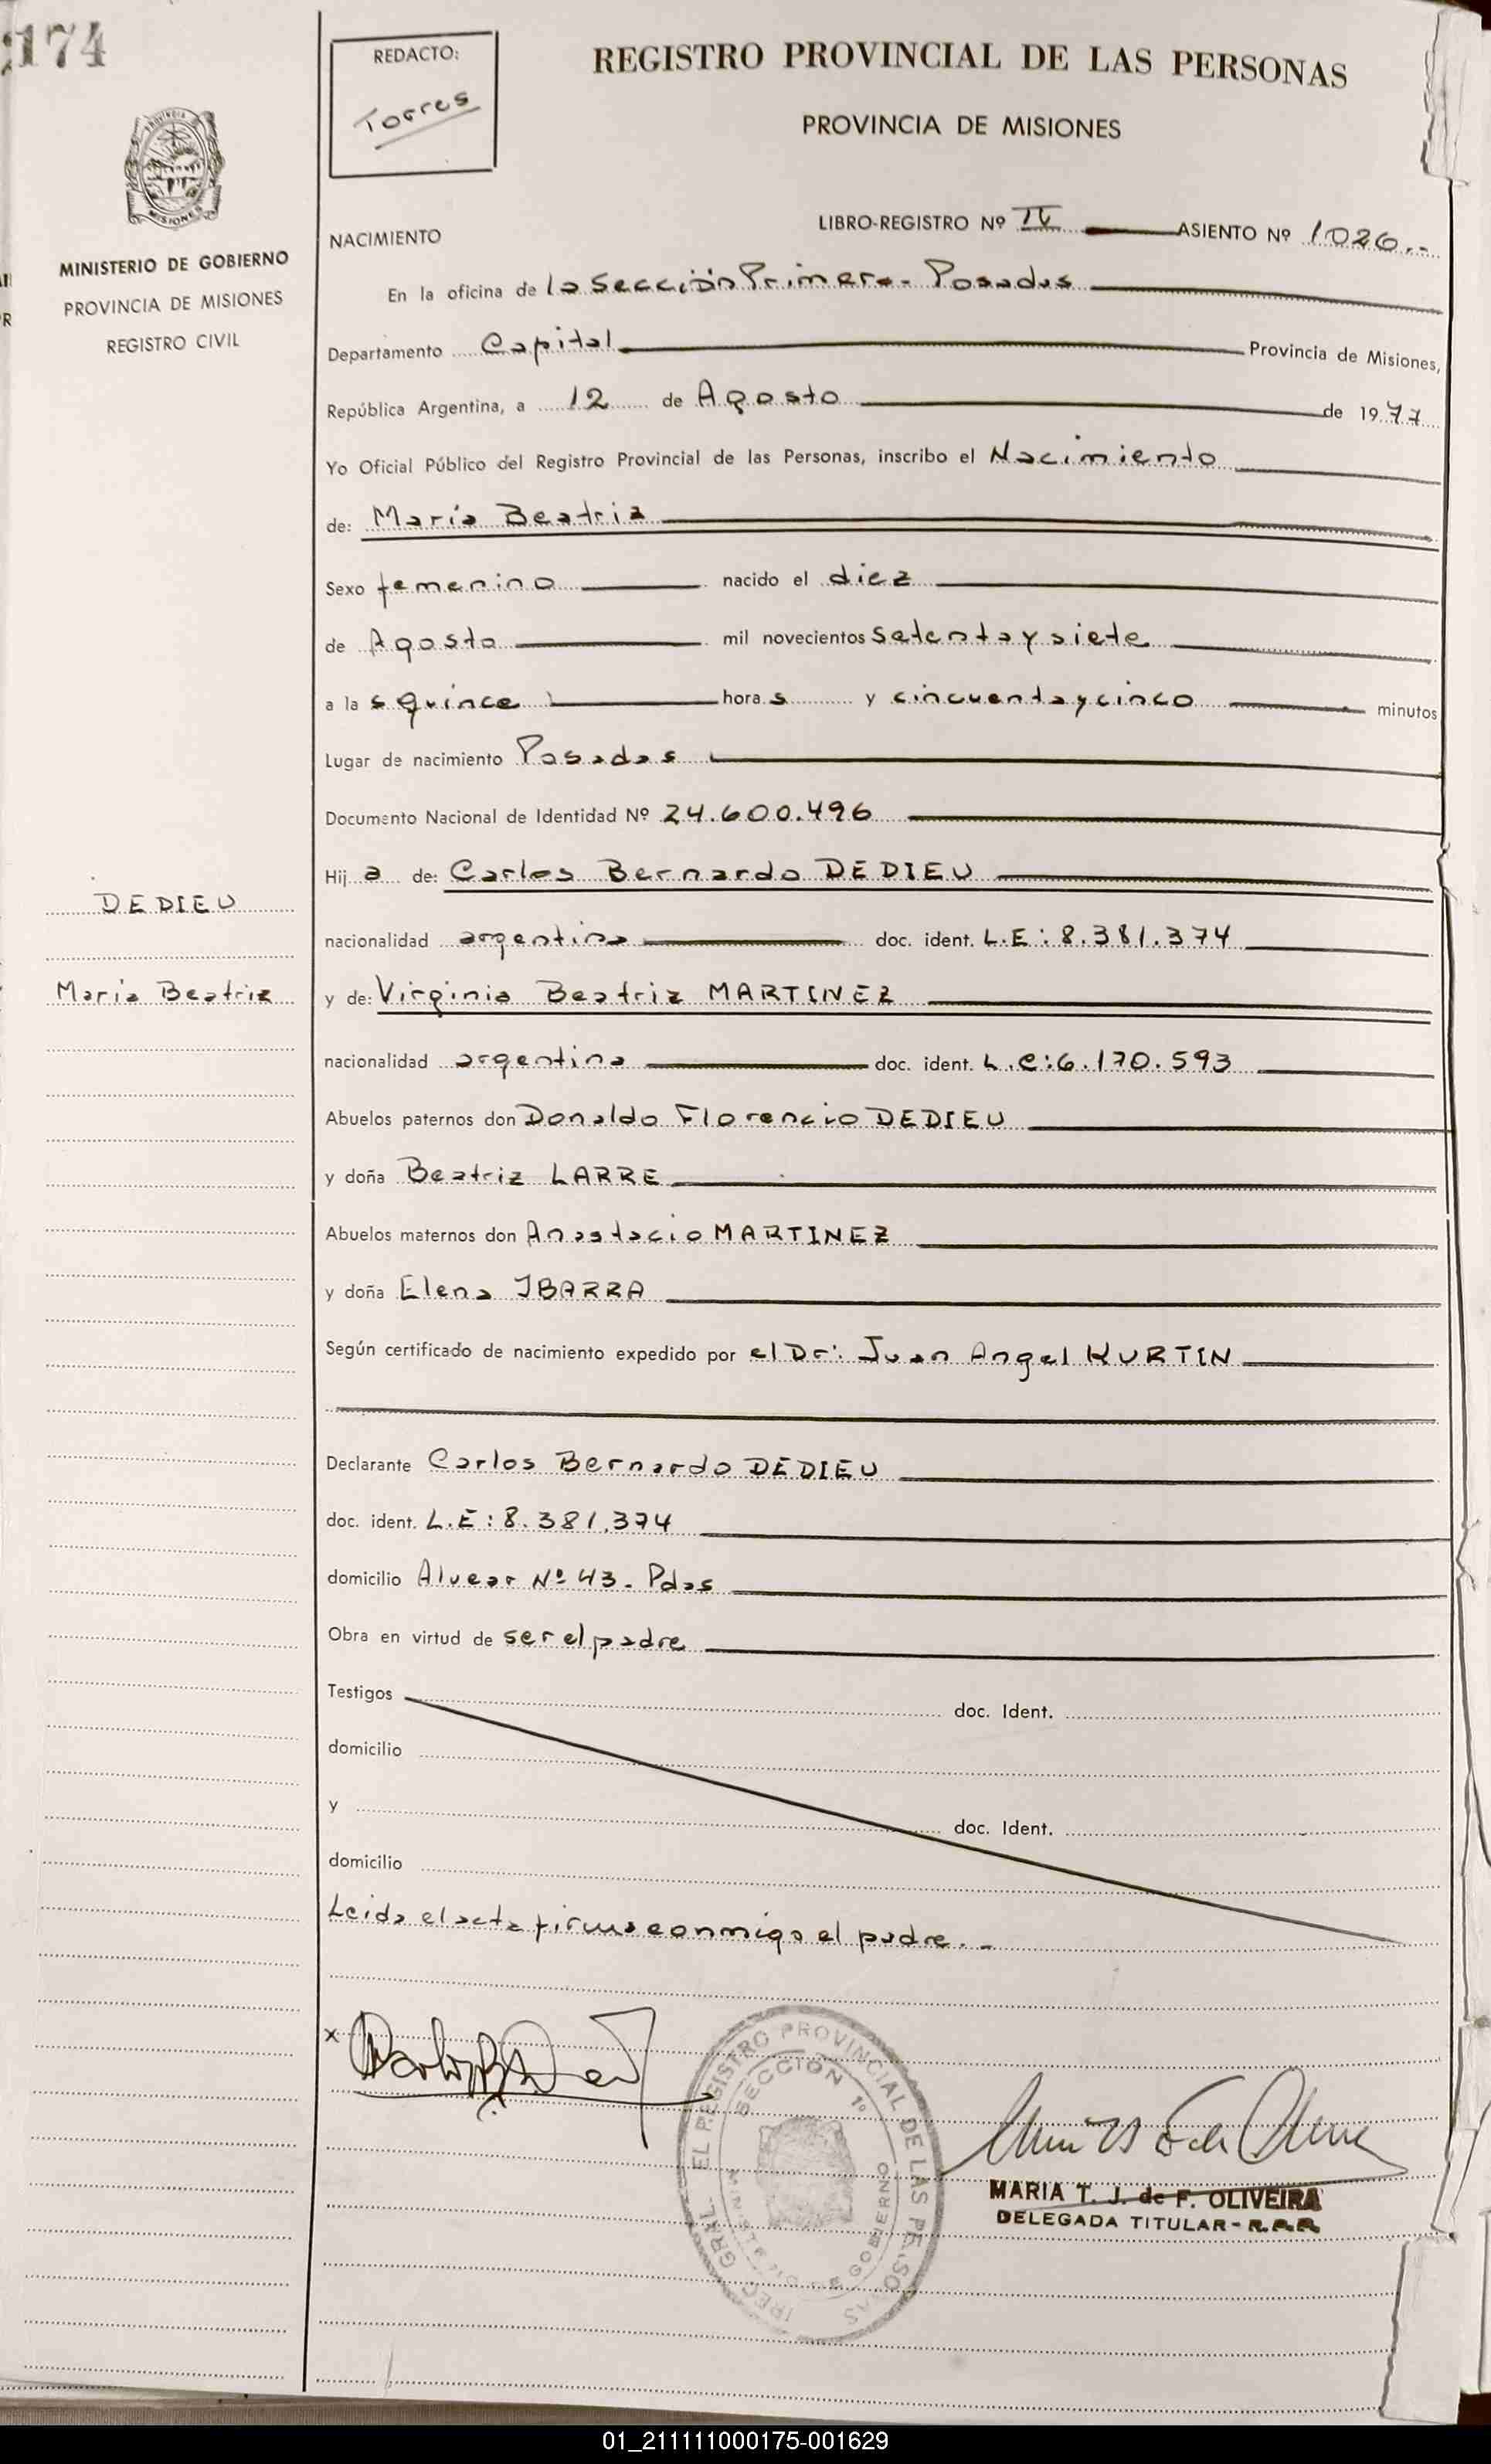 174
REDACTO:
Torres
REGISTRO PROVINCIAL DE LAS PERSONAS
PROVINCIA DE MISIONES
MISIONES
MINISTERIO DE GOBIERNO
PROVINCIA DE MISIONES
REGISTRO CIVIL
NACIMIENTO
LIBRO-REGISTRO Nº IV ASIENTO Nº 1026.-
En la oficina de la Sección Primera - Posadas
Departamento Capital Provincia de Misiones,
República Argentina, a 12 de Agosto de 1977
Yo Oficial Público del Registro Provincial de las Personas, inscribo el Nacimiento
de: María Beatriz
Sexo femenino nacido el diez
de Agosto mil novecientos setenta y siete
a las quince horas y cincuenta y cinco minutos
Lugar de nacimiento Posadas
Documento Nacional de Identidad Nº 24.600.496
Hija de: Carlos Bernardo DEDIEU
DEDIEU
nacionalidad argentina doc. ident. L.E: 8.381.374
María Beatriz
y de: Virginia Beatriz MARTINEZ
nacionalidad argentina doc. ident. L.C: 6.170.593
Abuelos paternos don Donaldo Florencio DEDIEU
y doña Beatriz LARRE
Abuelos maternos don Anastacio MARTINEZ
y doña Elena IBARRA
Según certificado de nacimiento expedido por el Dr: Juan Angel KURTIN
Declarante Carlos Bernardo DEDIEU
doc. ident. L.E: 8.381.374
domicilio Alvear Nº 43 - Pdas
Obra en virtud de ser el padre
Testigos doc. Ident.
domicilio
y doc. Ident.
domicilio
Leida el acta firma conmigo el padre.-
x
GRAL. EL REGISTRO PROVINCIAL DE LAS PERSONAS
SECCION 1º
GOBIERNO
MARIA T. J. de F. OLIVEIRA
DELEGADA TITULAR - R.P.P.
01_211111000175-001629